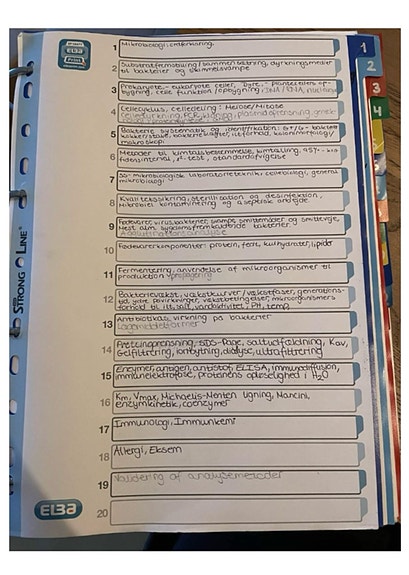 ELBA
Print
1 Mikrobiologi, ordforklaring.
2 Substratfremstilling/sammensætning, dyrkningsmedier
til bakterier og skimmelsvampe
3 Prokaryote- eukaryote celler, Dyre- plantecellers op-
bygning, celle funktion/opbygning, DNA/RNA,
4 Cellecyklus, celledeling: Meiose/Mitose
PCR,
5 Bakterie systematik og identifikation: G+/G- bakterier
kokker/stave, bakterielåget, iltforhold, kolonimorfologi/
mikroskopi
6 Metoder til kimtalsbestemmelse, kimtælling, 95%- kon
fidensinterval, test, standardafvigelse
7 mikrobiologisk laboratorieteknik, cellebiologi, generel
mikrobiologi
8 Kvalitetssikring, sterilisation og desinfektion,
Mikrobiel kontaminering og aseptisk arbejde
9 Fødevarer, virus, bakterier, svampe, smittemåder og smitteveje,
Mest alm. sygdomsfremkaldende bakterier
10 Fødevarekomponenter: protein, fedt, kulhydrater, lipider
11 Fermentering, anvendelse af mikroorganismer til
produktion
12 Bakterievækst, vækstkurver/vækstfaser, generations-
tid, ydre påvirkninger, vækstbetingelser, mikroorganismers
forhold til ilt, salt, vandaktivitet, PH, temp
13 Antibiotikas virkning på bakterier
Lægemiddelformer
14 Proteinoprensning, SDS-Page, saltudfældning, Kav,
Gelfiltrering, ionbytning, dialyse, ultrafiltrering
15 Enzymer, antigen, antistof, ELISA, immunodiffusion,
immunelektroforese, proteiners opløselighed i H2O
16 Km, Vmax, Michaelis-Menten ligning, Mancini,
enzymkinetik, coenzymer
17 Immunologi, Immunkemi
18 Allergi, Eksem
19 Validering af analysemetoder
20
STRONG LINE
ELBA
1
2
3
4